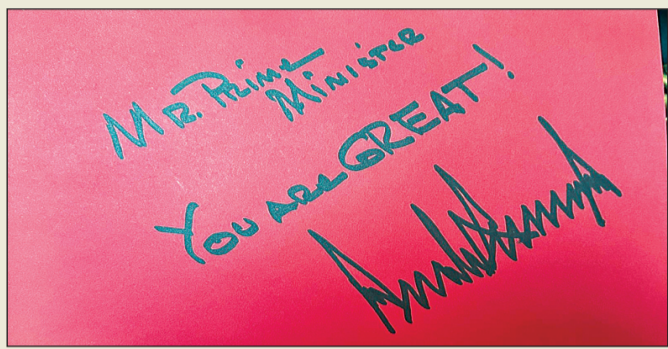 MR. PRIME
MINISTER
YOU ARE GREAT!